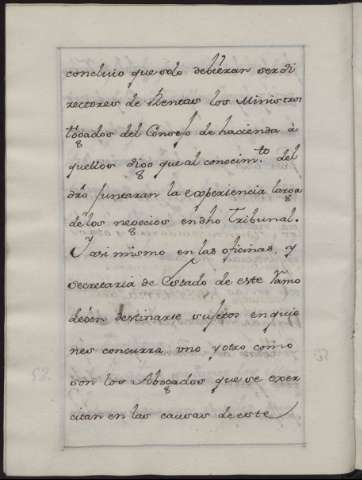 concluio que solo debieran ser di
rectores de Rentas los Ministros
togados del Consejo de hacienda a
quellos digo que al conocim.to del
dro. juntaran la experiencia larga
de los negocios en dho Tribunal.
Y asi mismo en las oficinas, y
secretaria de Estado de este Ramo
deven destinarse sujetos en quie
nes concurra uno y otro como
son los Abogados que se exer
citan en las causas de este